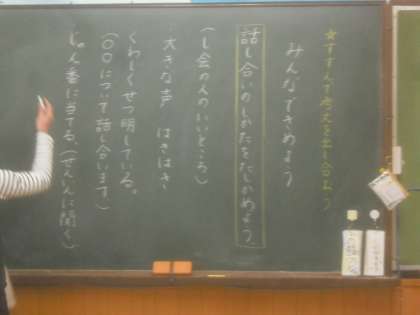 ☆すすんで考えを出し合おう
みんなできめよう
話し合いのしかたをたしかめよう。
（し会の人のいいところ）
大きな声　はきはき
くわしくせつ明している。
（〇〇について話し合います）
じゅん番に当てる。（ぜんいんに聞く）